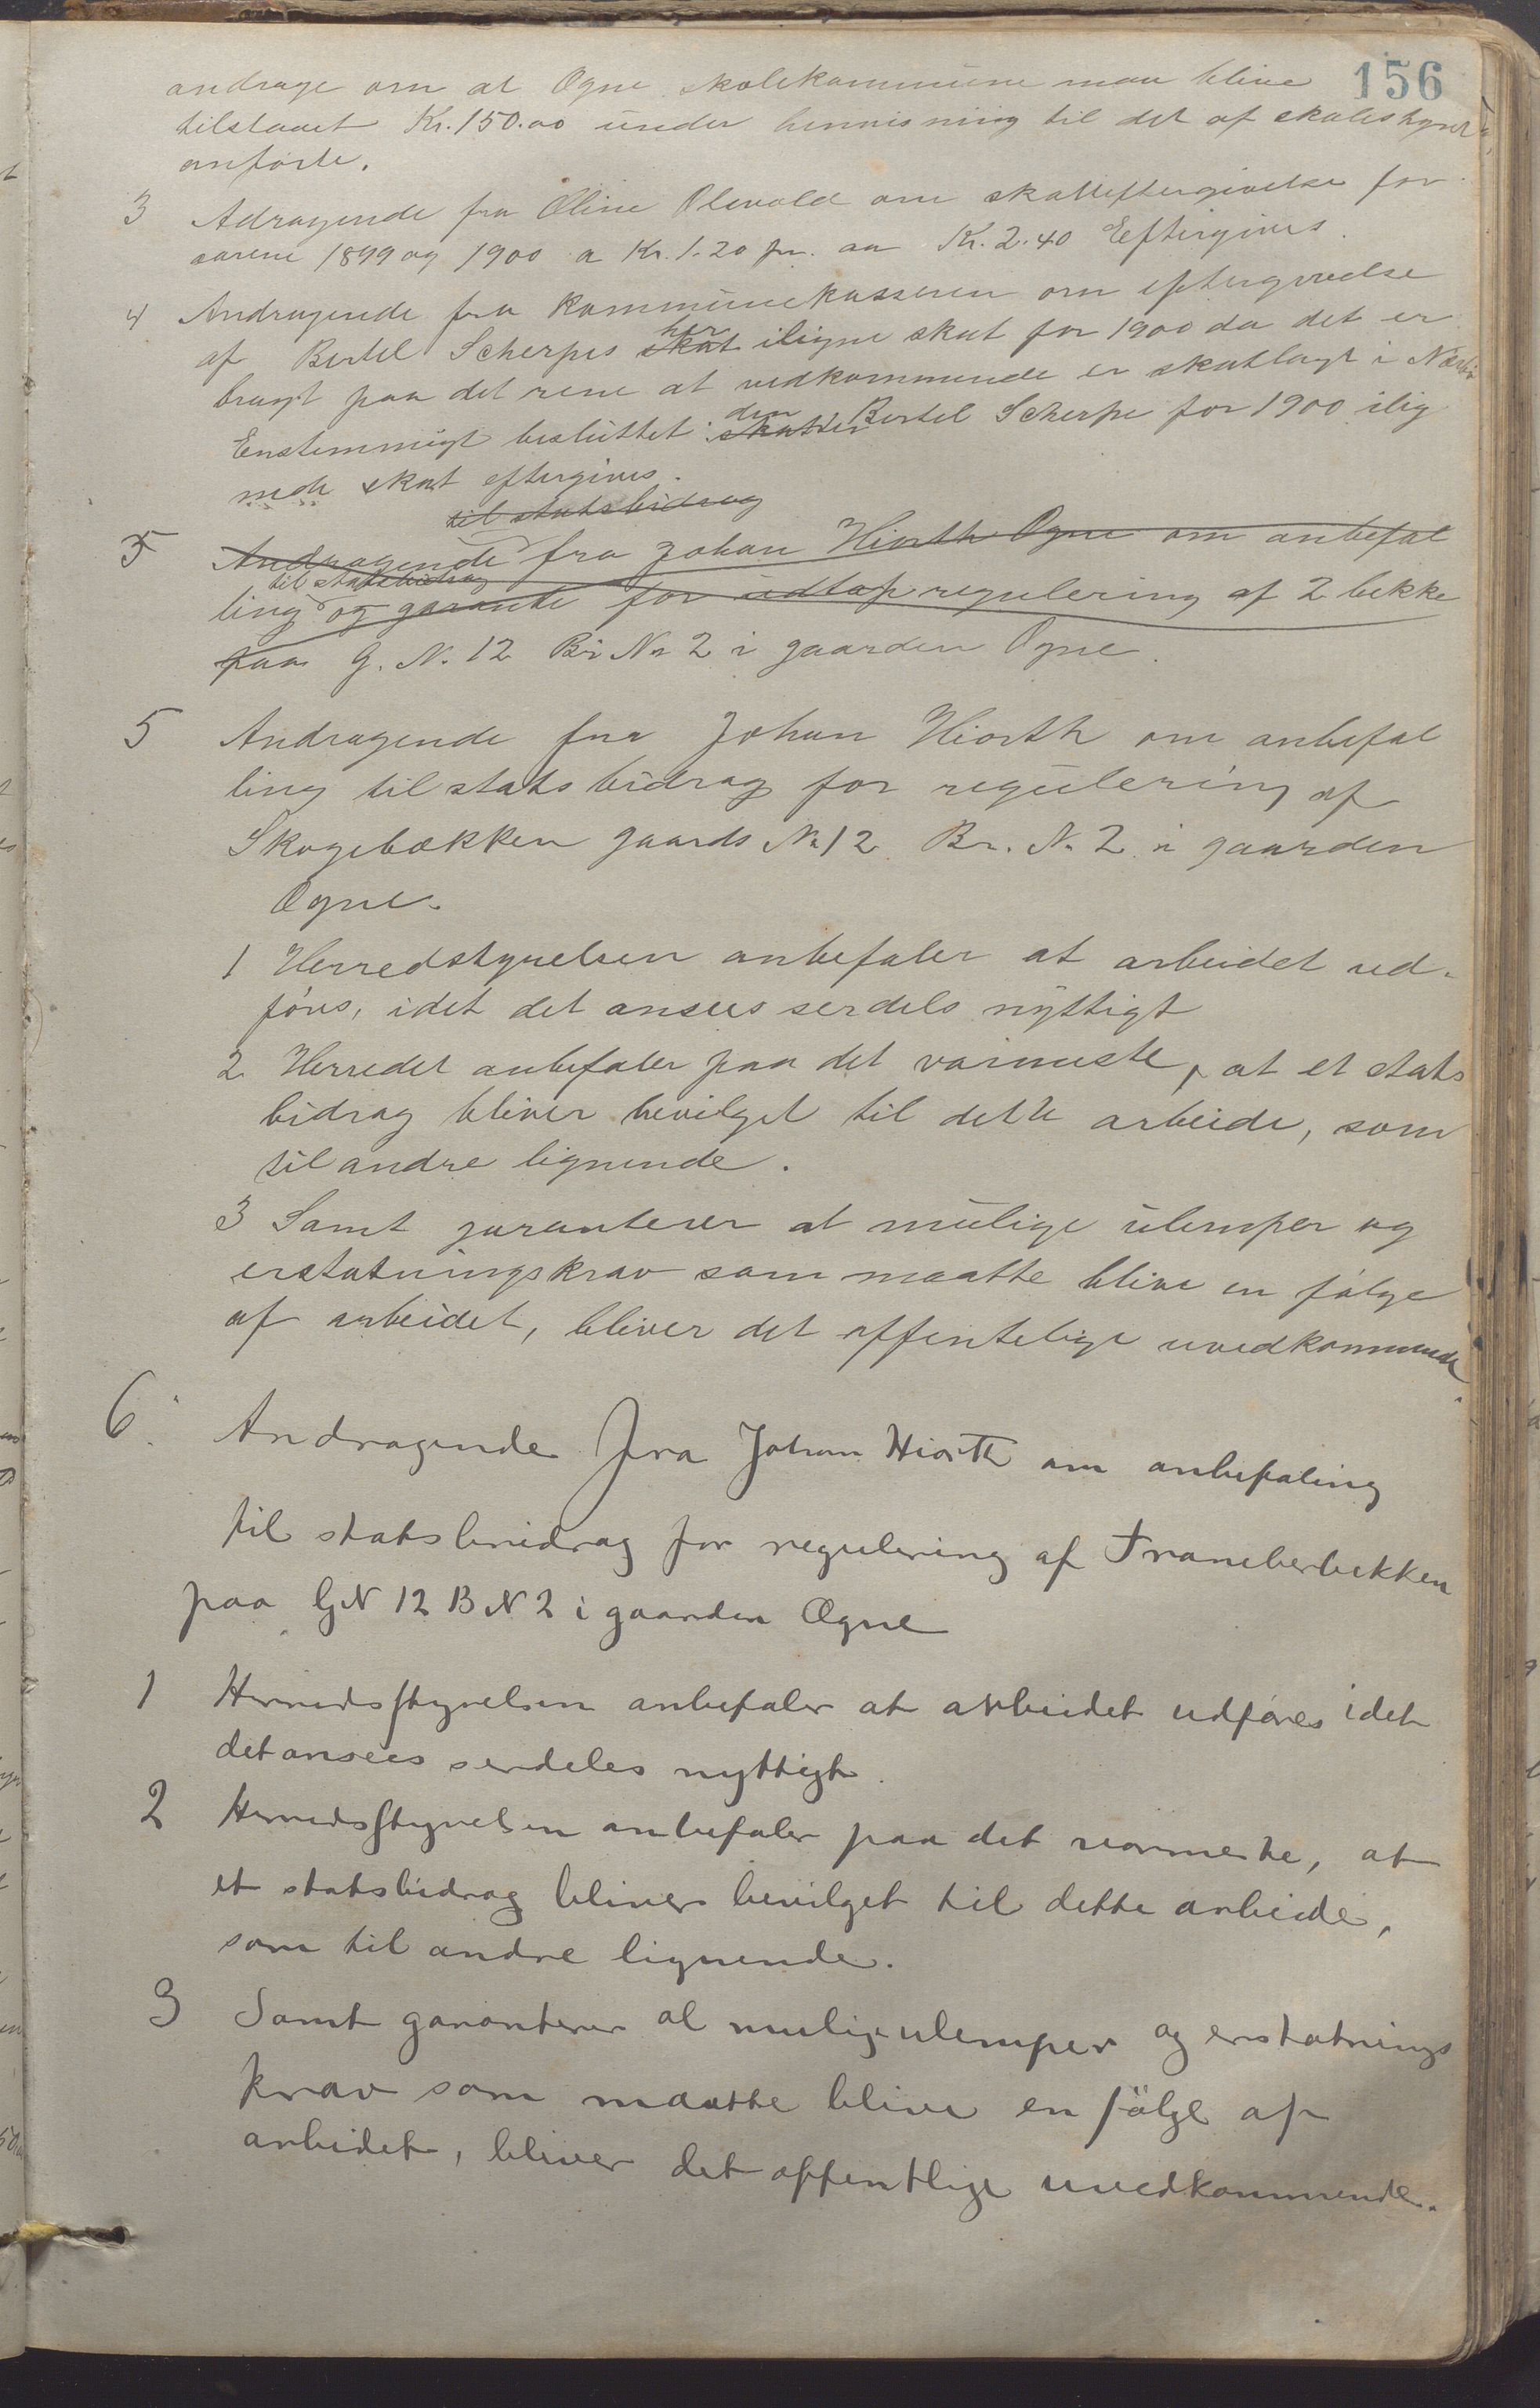 156
andrage om at Ogne skolekommune maa blive
tilstaaet Kr. 150.00 under henvisning til det af skolestyret
anførte.
3 Adragende fra Oline Olevold om skatteftergivelse for
aarene 1899 og 1900 a Kr. 1.20 pr. aa Kr. 2.40 Eftergives.
4 Andragende fra Kommunekasseren om eftergivelse
af Bertel Scherpes skat her iligne skat for 1900 da det er
bragt paa det rene at vedkommende er skatlagt i
Enstemmigt besluttet: skatten den Bertel Scherpe for 1900 ilig
nede skat eftergives.
til statsbidrag
5 Andragende fra Johan Hiorth Ogne om anbefal
til statsbidrag
ling og garanti for udtap regulering af 2 bekke
paa G. N. 12 Br No 2 i gaarden Ogne.
5 Andragende fra Johan Hiorth om anbefal
ling til statsbidrag for regulering af
Skogebækken gaards No 12 Br. N. 2 i gaarden
Ogne.
1 Herredstyrelsen anbefaler at arbeidet ud-
føres, idet det ansees serdels nyttigt
2 Herredet anbefaler paa det varmeste, at et stats
bidrag bliver bevilget til dette arbeide, som
til andre lignende.
3 Samt garanterer at mulige ulemper og
erstatningskrav som maatte blive en følge
af arbeidet, bliver det offentelige uvedkommende.
6. Andragende fra Johan Hiorth om anbefaling
til statsbidrag for regulering af Traneberbekken
paa GN 12 BN 2 i gaarden Ogne
1 Herredsstyrelsen anbefaler at arbeidet udføres idet
det ansees serdeles nyttigt.
2 Herredsstyrelsen anbefaler paa det varmeste, at
et statsbidrag bliver bevilget til dette arbeide,
som til andre lignende.
3 Samt garanterer al mulig ulemper og erstatnings
krav som maatte blive en følge af
arbidet, bliver det offentlige uvedkommende.